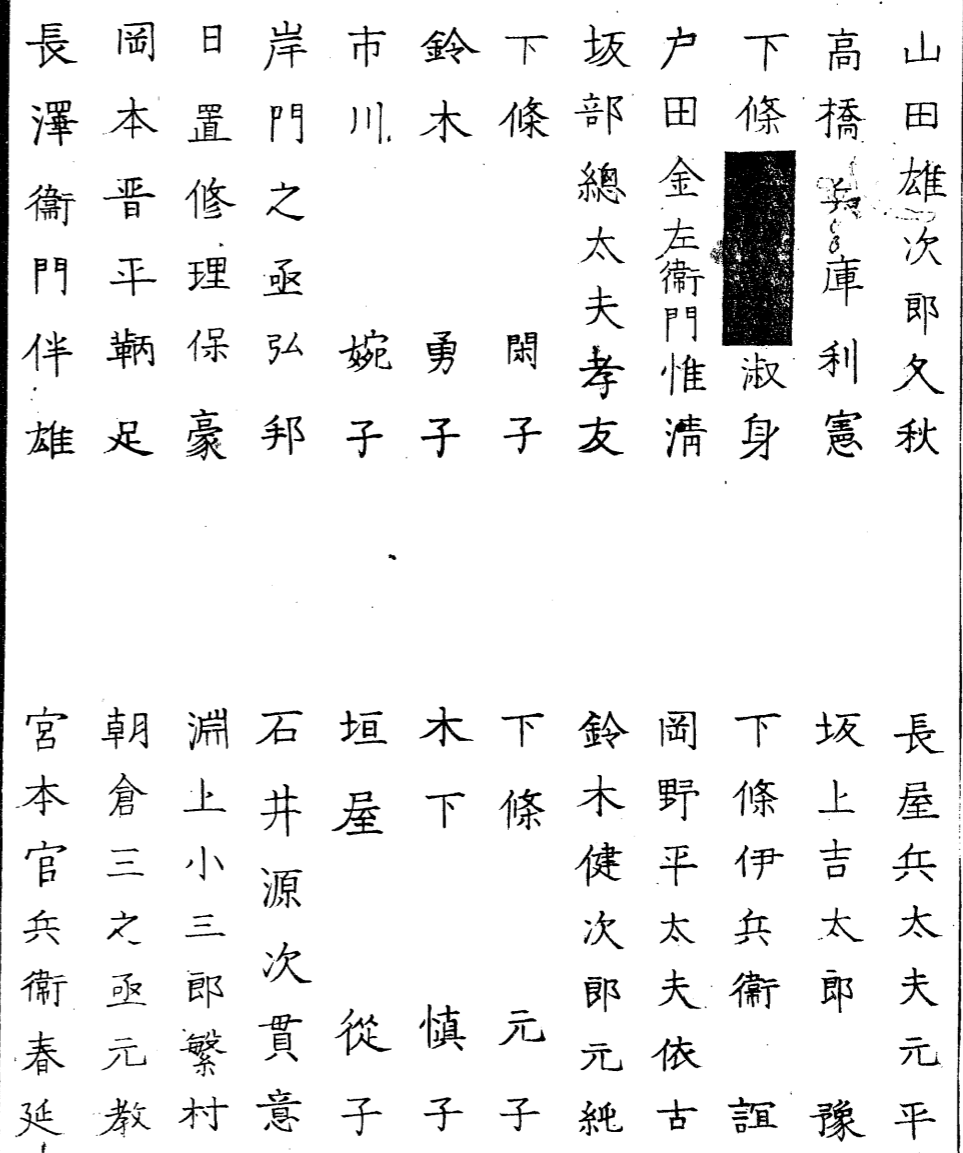 山田雄次郎久秋
高橋兵庫利憲
下條
淑身
戸田金左衞門惟淸
坂部總太夫孝友
下條閑子
鈴木勇子
市川婉子
岸門之亟弘邦
日置修理保豪
岡本晋平鞆足
長澤衞門伴雄
長屋兵太夫元平
坂上吉太郎豫
下條伊兵衞誼
岡野平太夫依古
鈴木健次郎元純
下條元子
木下愼子
垣屋從子
石井源次貫意
淵上小三郎繁村
朝倉三之亟元教
宮本官兵衞春延